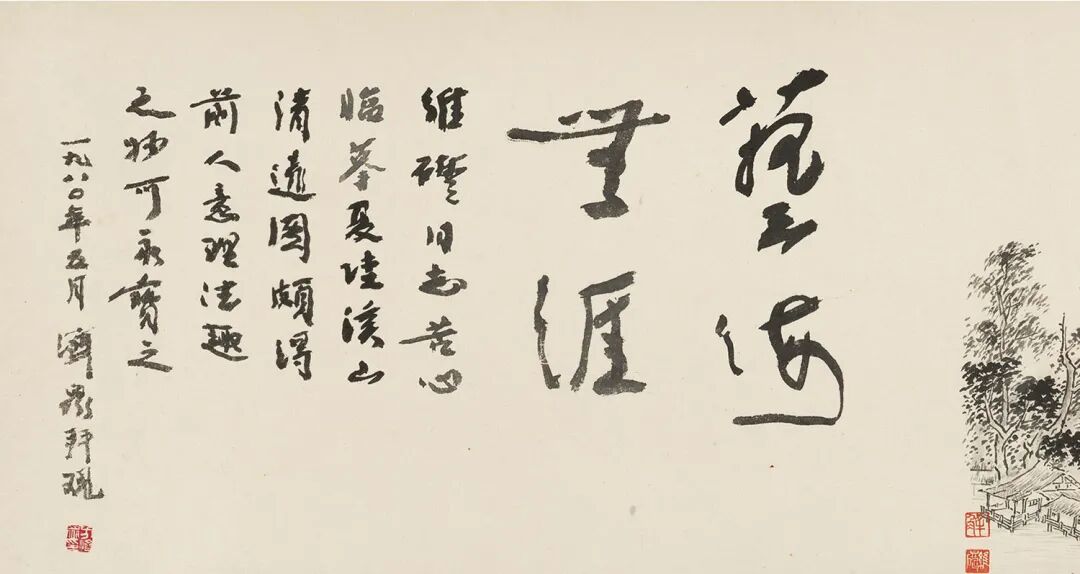 藝海
無涯
維礎同志苦心
臨摹夏珪溪山
清遠圖頗得
前人意理法趣
之妙可永寶之
一九八〇年五月濟眾